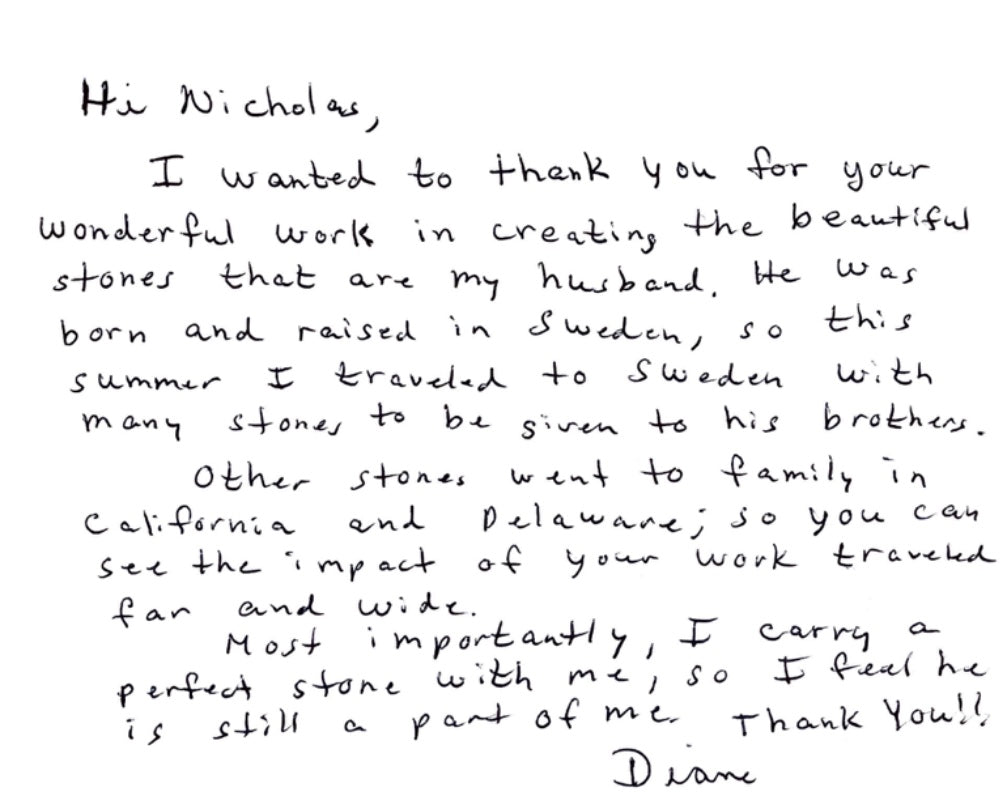 Hi Nicholas,
I wanted to thank you for your
wonderful work in creating the beautiful
stones that are my husband. He was
born and raised in Sweden, so this
summer I traveled to Sweden with
many stones to be given to his brothers.
Other stones went to family in
California and Delaware; so you can
see the impact of your work traveled
far and wide.
Most importantly, I carry a
perfect stone with me, so I feel he
is still a part of me. Thank You!!
Diane